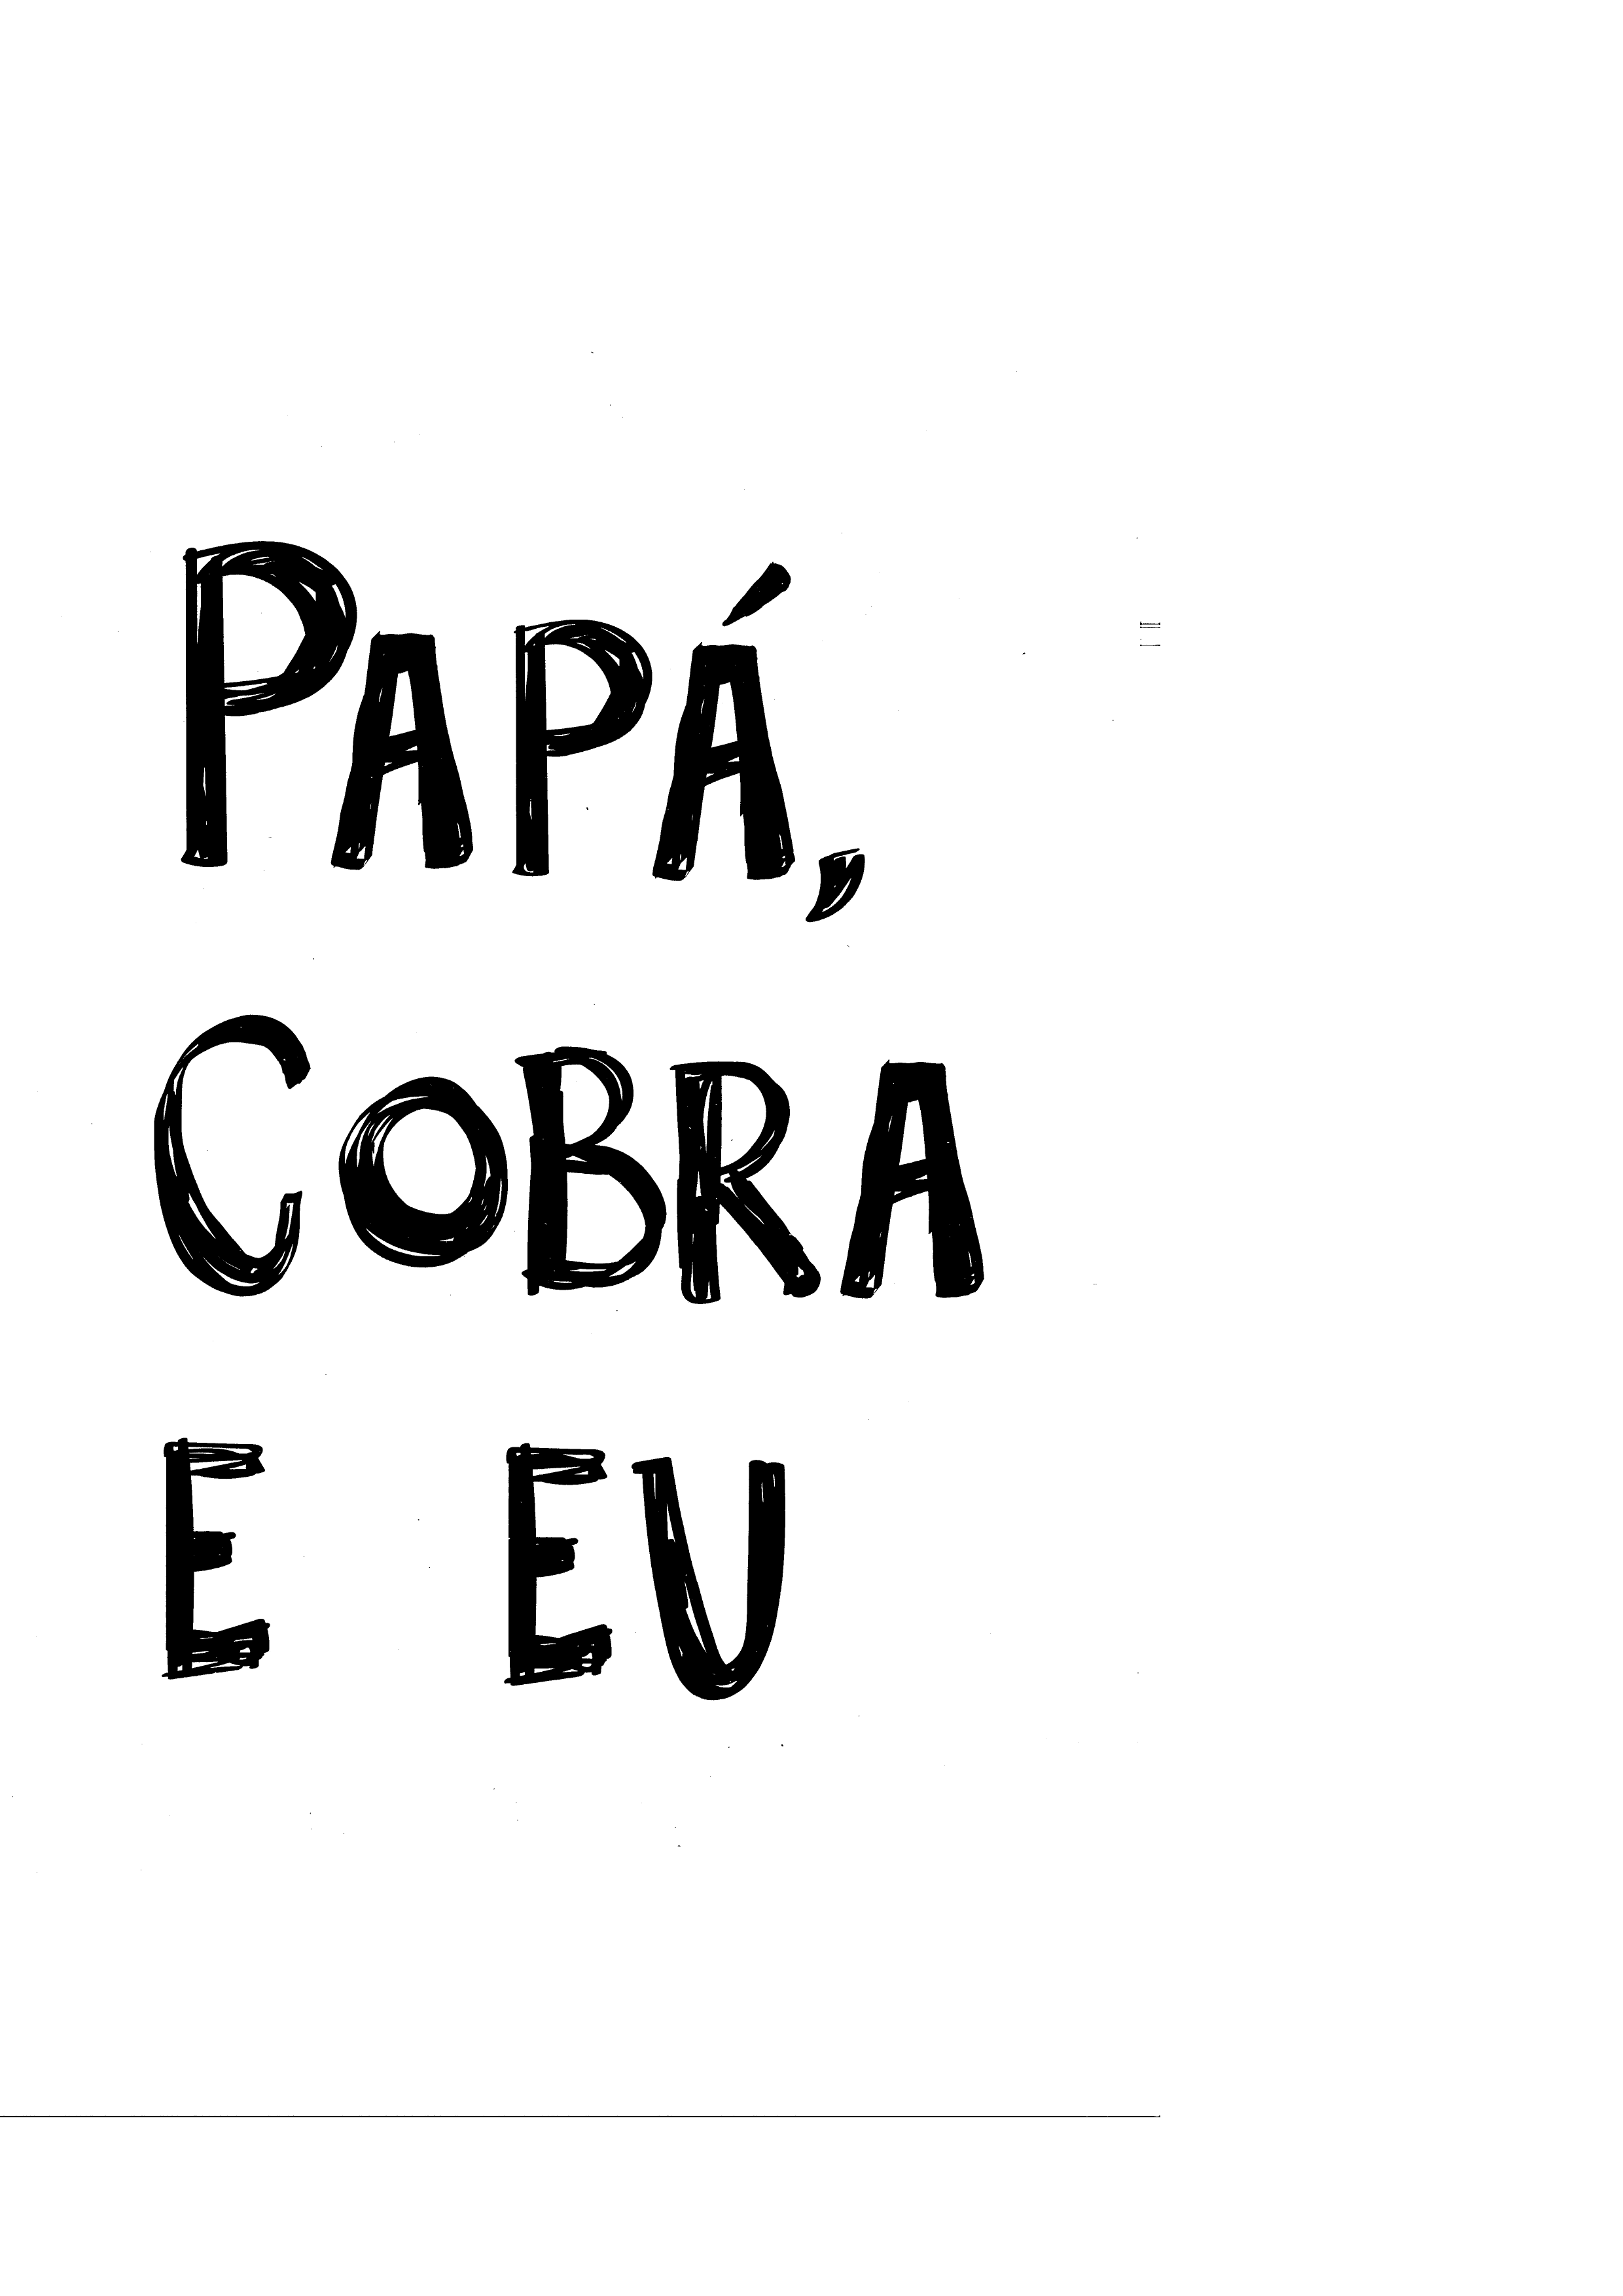 PAPÁ,
COBRA
E EU